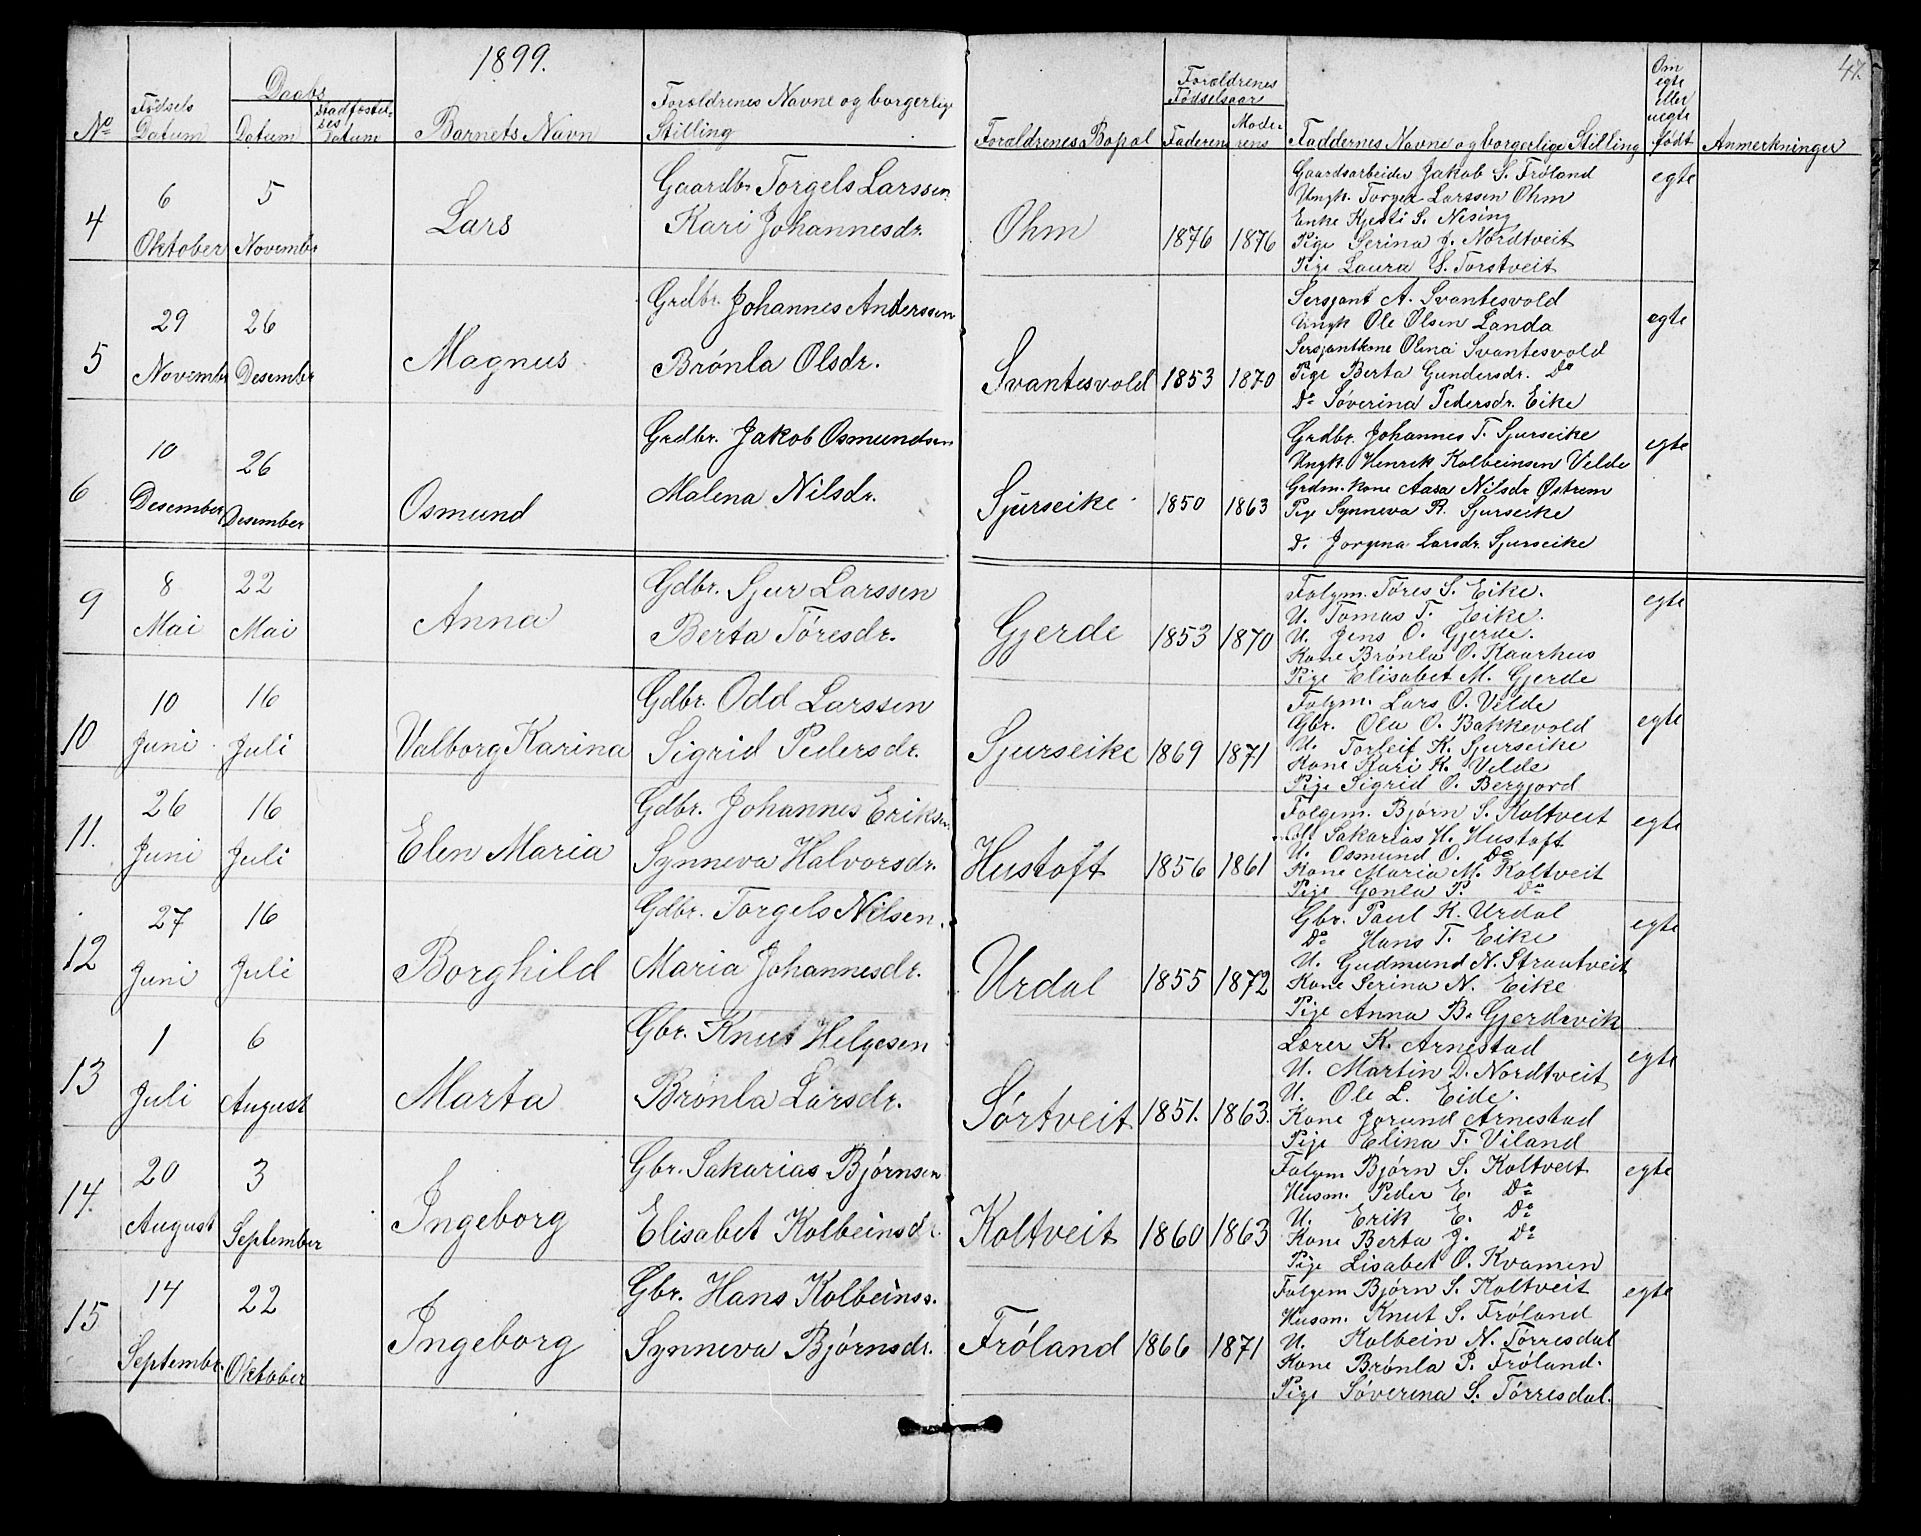 1899.
47.
No
Fødsels Datum
Daabs
Datum
Stadfæstelses Datum
Barnets Navn
Forældrenes Navne og borgerlige Stilling
Forældrenes Bopæl
Forældrenes Fødselsaar
Faderens
Moderens
Faddernes Navne og borgerlige Stilling
Om egte Eller uegte født
Anmerkninger
4
6 Oktober
5 Novembr
Lars
Gaardbr. Torgels Larssen
Kari Johannesdr.
Ohm
1876
1876
Gaardsarbeider Jakob S. Frøland
Ungk. Torger Larssen Ohm
Enke Kjesti S. Nesing
Pige Serina J. Nordtveit
Pige Laura S. Torstveit
egte
5
29 Novembr
26 Desember
Magnus
Grdbr. Johannes Anderssen
Brønla Olsdr.
Svantesvold
1853
1870
Sersjant A. Svantesvold
Ungk Ole Olsen Landa
Sersjantkone Olina Svantesvold
Pige Berta Gundersdr. Do
Do Søverina Pedersdr. Eike
egte
6
10 Desember
26 Desember
Osmund
Grdbr. Jakob Osmundsen
Malena Nilsdr.
Sjurseike
1850
1863
Grdbr. Johannes T. Sjurseike
Ungk. Henrik Kolbeinsen Velde
Grdm. Kone Aasa Nilsdr Østrem
Pige Synneva R. Sjurseike
D. Jorgina Larsdr. Sjurseike
egte
9
8 Mai
22 Mai
Anna
Gdbr. Sjur Larssen
Berta Tøresdr.
Gjerde
1853
1870
Folgm. Tøres S. Eike.
U. Tomas T. Eike.
U. Jens O. Gjerde.
Kone Brønla O. Kaarhus
Pige Elisabet M. Gjerde
egte
10
10 Juni
16 Juli
Valborg Karina
Gdbr. Odd Larssen
Sigrid Pedersdr.
Sjurseike
1869
1871
Folgm. Lars O. Velde
Gbr. Ola O. Bakkevold
U. Torleif K. Sjurseike
Kone Kari K. Velde
Pige Sigrid O. Bergjord
egte
11.
26 Juni
16 Juli
Elen Maria
Gdbr. Johannes Eriksen
Synneva Halvorsdr.
Hustoft
1856
1861
Folgem. Bjørn S. Koltveit
Sakarias H. Hustoft
U. Osmund O. Do
Kone Maria M. Koltveit
Pige Gonla P. Do
egte
12
27 Juni
16 Juli
Borghild
Gdbr. Torgels Nilsen.
Maria Johannesdr.
Urdal
1855
1872
Gbr. Paul K. Urdal
Do Hans T. Eike
U. Gudmund N. Strautveit
Kone Serina N. Eike
Pige Anna B. Gjerdevik
egte
13
1 Juli
6 August
Marta
Gbr. Knut Helgesen
Brønla Larsdr.
Sørtveit
1851.
1863.
Lærer K. Arnestad
U. Martin D. Nordtveit
U. Ole L. Eide.
Kone Jorund Arnestad
Pige Elina T. Viland
egte
14.
20 August
3 September
Ingeborg
Gbr. Sakarias Bjørnsen
Elisabet Kolbeinsdr.
Koltveit
1860
1863
Folgem Bjørn S. Koltveit
Husm. Peder E. Do
U. Erik E. Do
Kone Berta J. Do
Pige Lisabet O. Kvamen
egte
15
14 Septembr.
22 Oktober
Ingeborg
Gbr. Hans Kolbeinss.
Synneva Bjørnsdr.
Frøland
1866
1871
Folgem Bjørn S. Koltveit
Husm. Knut S. Frøland
U. Kolbein N. Tørresdal
Kone Brønla P. Frøland.
Pige Søverina S. Tørresdal.
egte